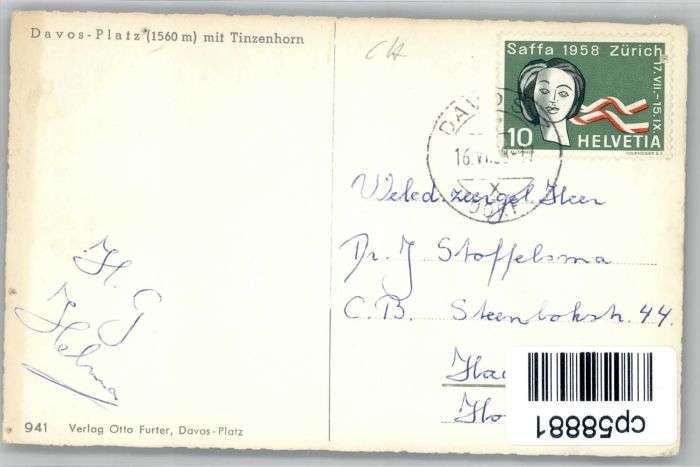 Davos-Platz (1560 m) mit Tinzenhorn
CH
Saffa 1958 Zürich
17.VII.-15.IX.
10 HELVETIA
DAVOS
16.VI.58-17
X
DORF
Weled. zeergel. Heer
Dr. J Stoffelsma
C.B. Steenbokstr. 44.
H. G
Helma
941 Verlag Otto Furter, Davos-Platz
cp58881